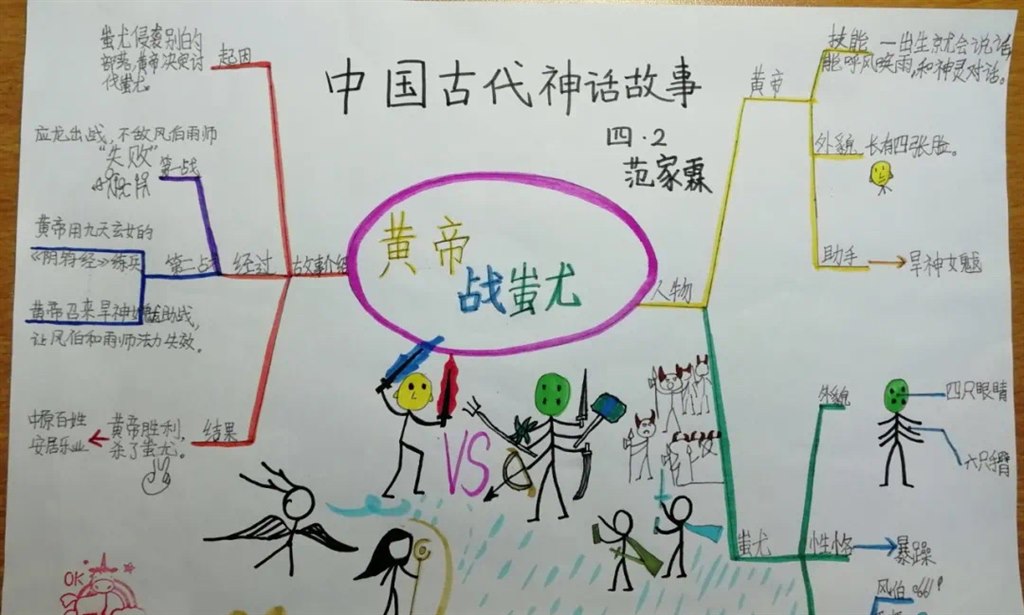 中国古代神话故事
四·2
范家霖
黄帝
战蚩尤
故事介绍
起因
蚩尤侵袭别的
部落,黄帝决定讨
伐蚩尤。
经过
第一战
应龙出战,不敌风伯雨师
"失败"
第二战
黄帝用九天玄女的
《阴符经》练兵
黄帝召来旱神女魃助战,
让风伯和雨师法力失效。
结果
黄帝胜利,
杀了蚩尤。
中原百姓
安居乐业
人物
黄帝
技能 一出生就会说话
能呼风唤雨,和神灵对话。
外貌 长有四张脸。
助手
旱神女魃
蚩尤
外貌
四只眼睛
六只手臂
性格
暴躁
风伯
VS
OK